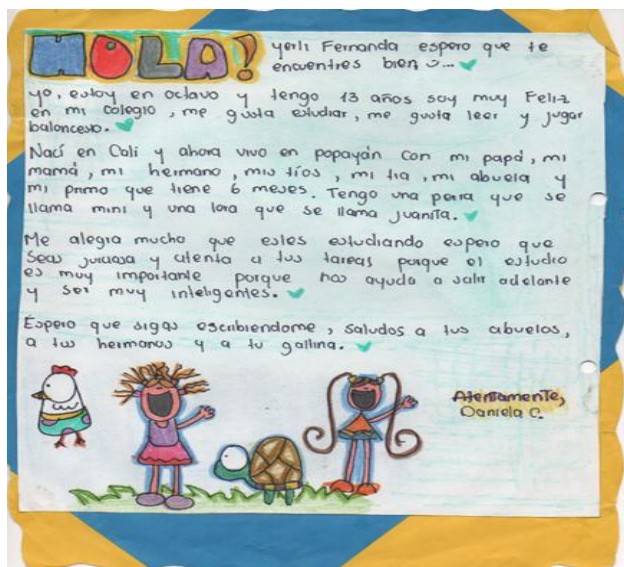 HOLA! yerli Fernanda espero que te
encuentres bien
yo, estoy en octavo y tengo 13 años soy muy Feliz
en mi colegio, me gusta estudiar, me gusta leer y jugar
baloncesto.
Nací en Cali y ahora vivo en popayán con mi papá, mi
mamá, mi hermano, mis tíos, mi tia, mi abuela y
mi primo que tiene 6 meses. Tengo una perra que se
llama mini y una lora que se llama juanita.
Me alegra mucho que estes estudiando espero que
seas juiciosa y atenta a tus tareas porque el estudio
es muy importante porque nos ayuda a salir adelante
y ser muy inteligentes.
Espero que sigas escribiendome, saludos a tus abuelos,
a tus hermanos y a tu gallina.
Atentamente,
Daniela C.